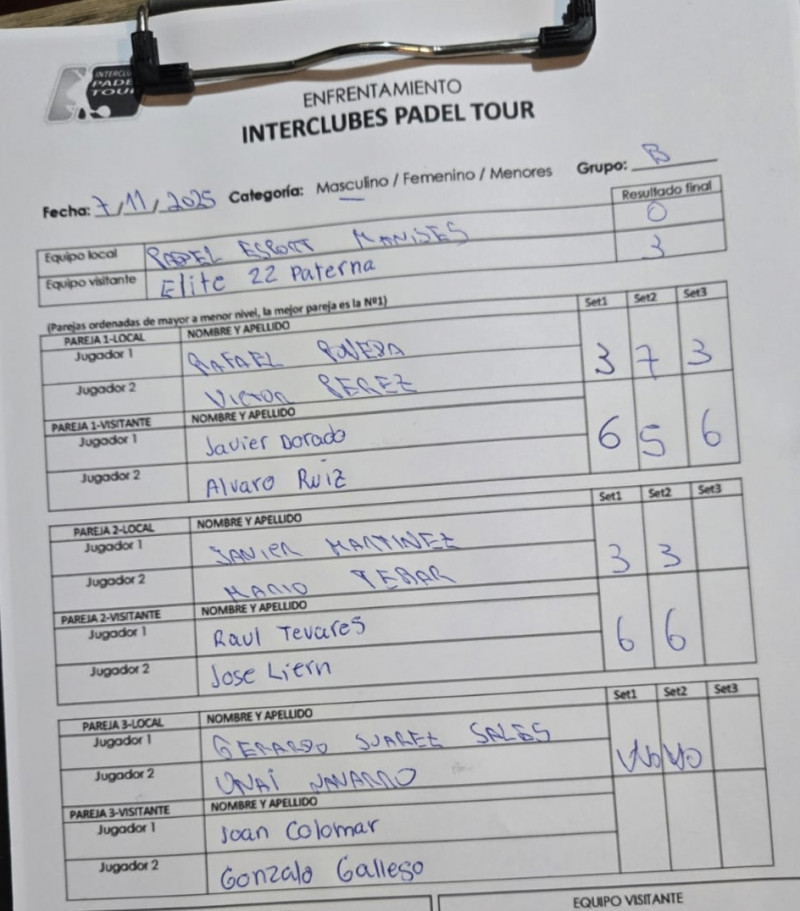 INTERCLU
PADE
TOU
ENFRENTAMIENTO
INTERCLUBES PADEL TOUR
Fecha: 7/11/2025 Categoría: Masculino / Femenino / Menores Grupo: B
Resultado final
Equipo local PADEL ESPORT MANISES 0
Equipo visitante Elite 22 Paterna 3
(Parejas ordenadas de mayor a menor nivel, la mejor pareja es la Nº1)
PAREJA 1-LOCAL NOMBRE Y APELLIDO Set1 Set2 Set3
Jugador 1 RAFAEL
Jugador 2 VICTOR PEREZ 3 7 3
PAREJA 1-VISITANTE NOMBRE Y APELLIDO
Jugador 1 Javier Dorado 6 5 6
Jugador 2 Alvaro Ruiz
PAREJA 2-LOCAL NOMBRE Y APELLIDO Set1 Set2 Set3
Jugador 1 JAVIER MARTINEZ
Jugador 2 MARIO TEBAR 3 3
PAREJA 2-VISITANTE NOMBRE Y APELLIDO
Jugador 1 Raul Tevares 6 6
Jugador 2 Jose Liern
PAREJA 3-LOCAL NOMBRE Y APELLIDO Set1 Set2 Set3
Jugador 1 GERARDO SUAREZ SALES
Jugador 2 UNAI NAVARRO
PAREJA 3-VISITANTE NOMBRE Y APELLIDO
Jugador 1 Joan Colomar
Jugador 2 Gonzalo Gallego
EQUIPO VISITANTE